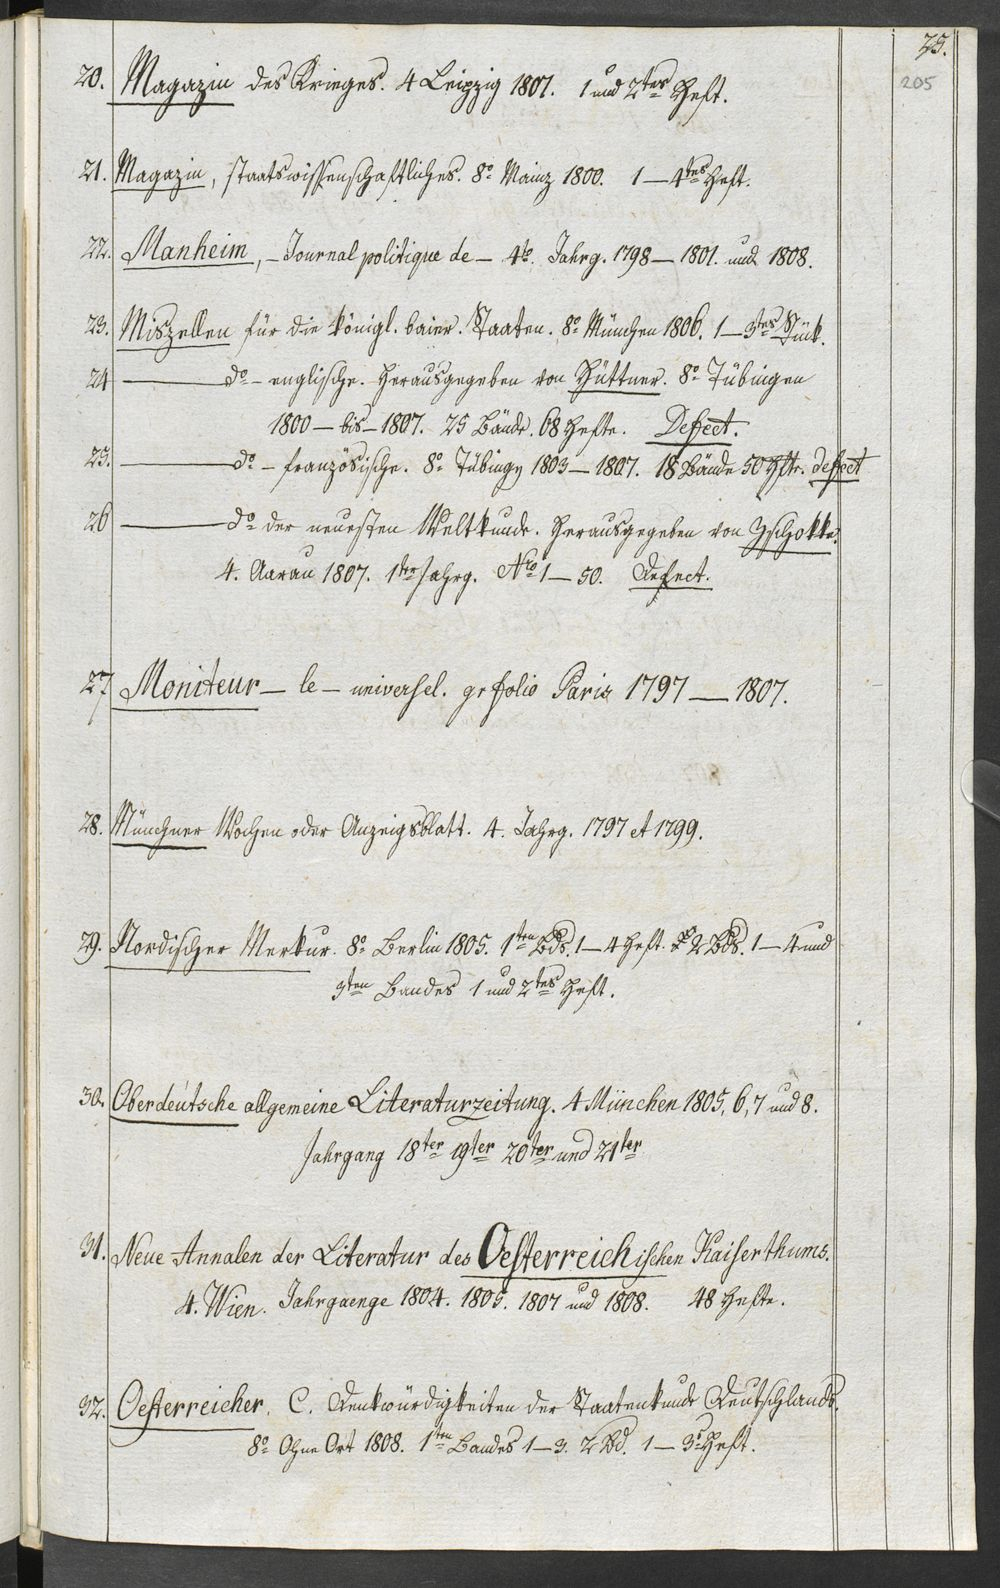 25.
205
20. Magazin des Krieges. 4 Leipzig 1801. 1 und 2tes Heft.
21. Magazin, staatswissenschaftliches. 8o Mainz 1800. 1 — 4tes Heft.
22. Manheim, – Journal politique de – 4to. Jahrg. 1798 — 1801. und 1808.
23. Miszellen für die königl. baier. Staaten. 8o München 1806. 1 — 3tes Stük.
24 ——— do – englische. Herausgegeben von Hüttner. 8o Tübingen
1800 — bis — 1807. 25 Bände. 68 Hefte. Defect.
25. ——— do – französische. 8o Tübingen 1803 — 1807. 18 Bände 50 Hfte. defect
26 ——— do der neuesten Weltkunde. Herausgegeben von Zschokke.
4. Aarau 1807. 1ter Jahrg. No 1 — 50. Defect.
27 Moniteur – le – universel. gr folio Paris 1797 — 1807.
28. Münchner Wochen oder Anzeigsblatt. 4. Jahrg. 1797 et 1799.
29. Nordischer Merkur. 8o Berlin 1805. 1ten Bds. 1 — 4 Heft. 2 Bds. 1 — 4 und
3ten Bandes 1 und 2tes Heft.
30. Oberdeutsche allgemeine Literaturzeitung. 4 München 1805, 6, 7 und 8.
Jahrgang 18ter 19ter 20ter und 21ter
31. Neue Annalen der Literatur des Oesterreichischen Kaiserthums.
4. Wien. Jahrgaenge 1804. 1805. 1807 und 1808. 48 Hefte.
32. Oesterreicher, C. Denkwürdigkeiten der Staatenkunde Deutschlands.
8o Ohne Ort 1808. 1ten Bandes 1 — 3. 2 Bd. 1 — 3s Heft.